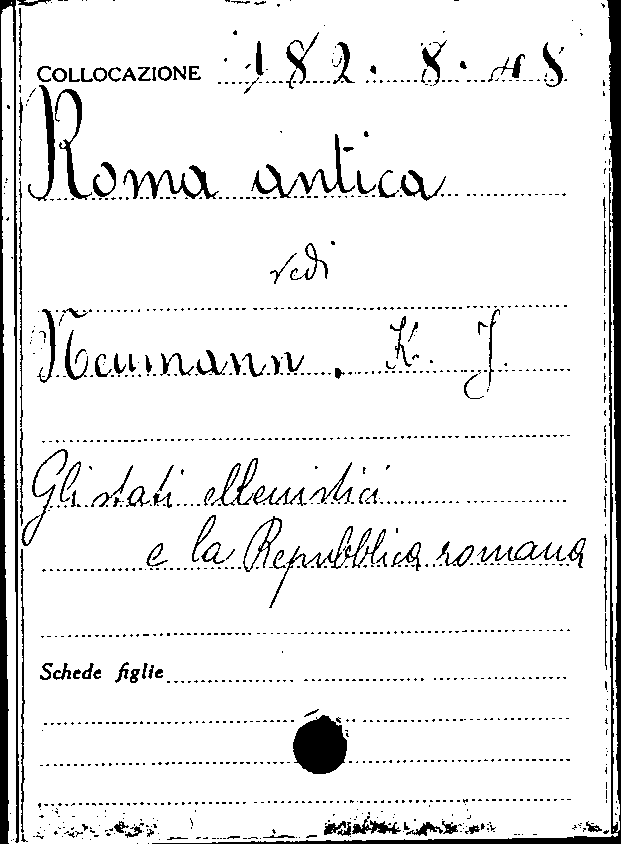 COLLOCAZIONE 182. 8. 48
Roma antica
vedi
Neumann, K. J.
Gli stati ellenistici
e la Repubblica romana
Schede figlie